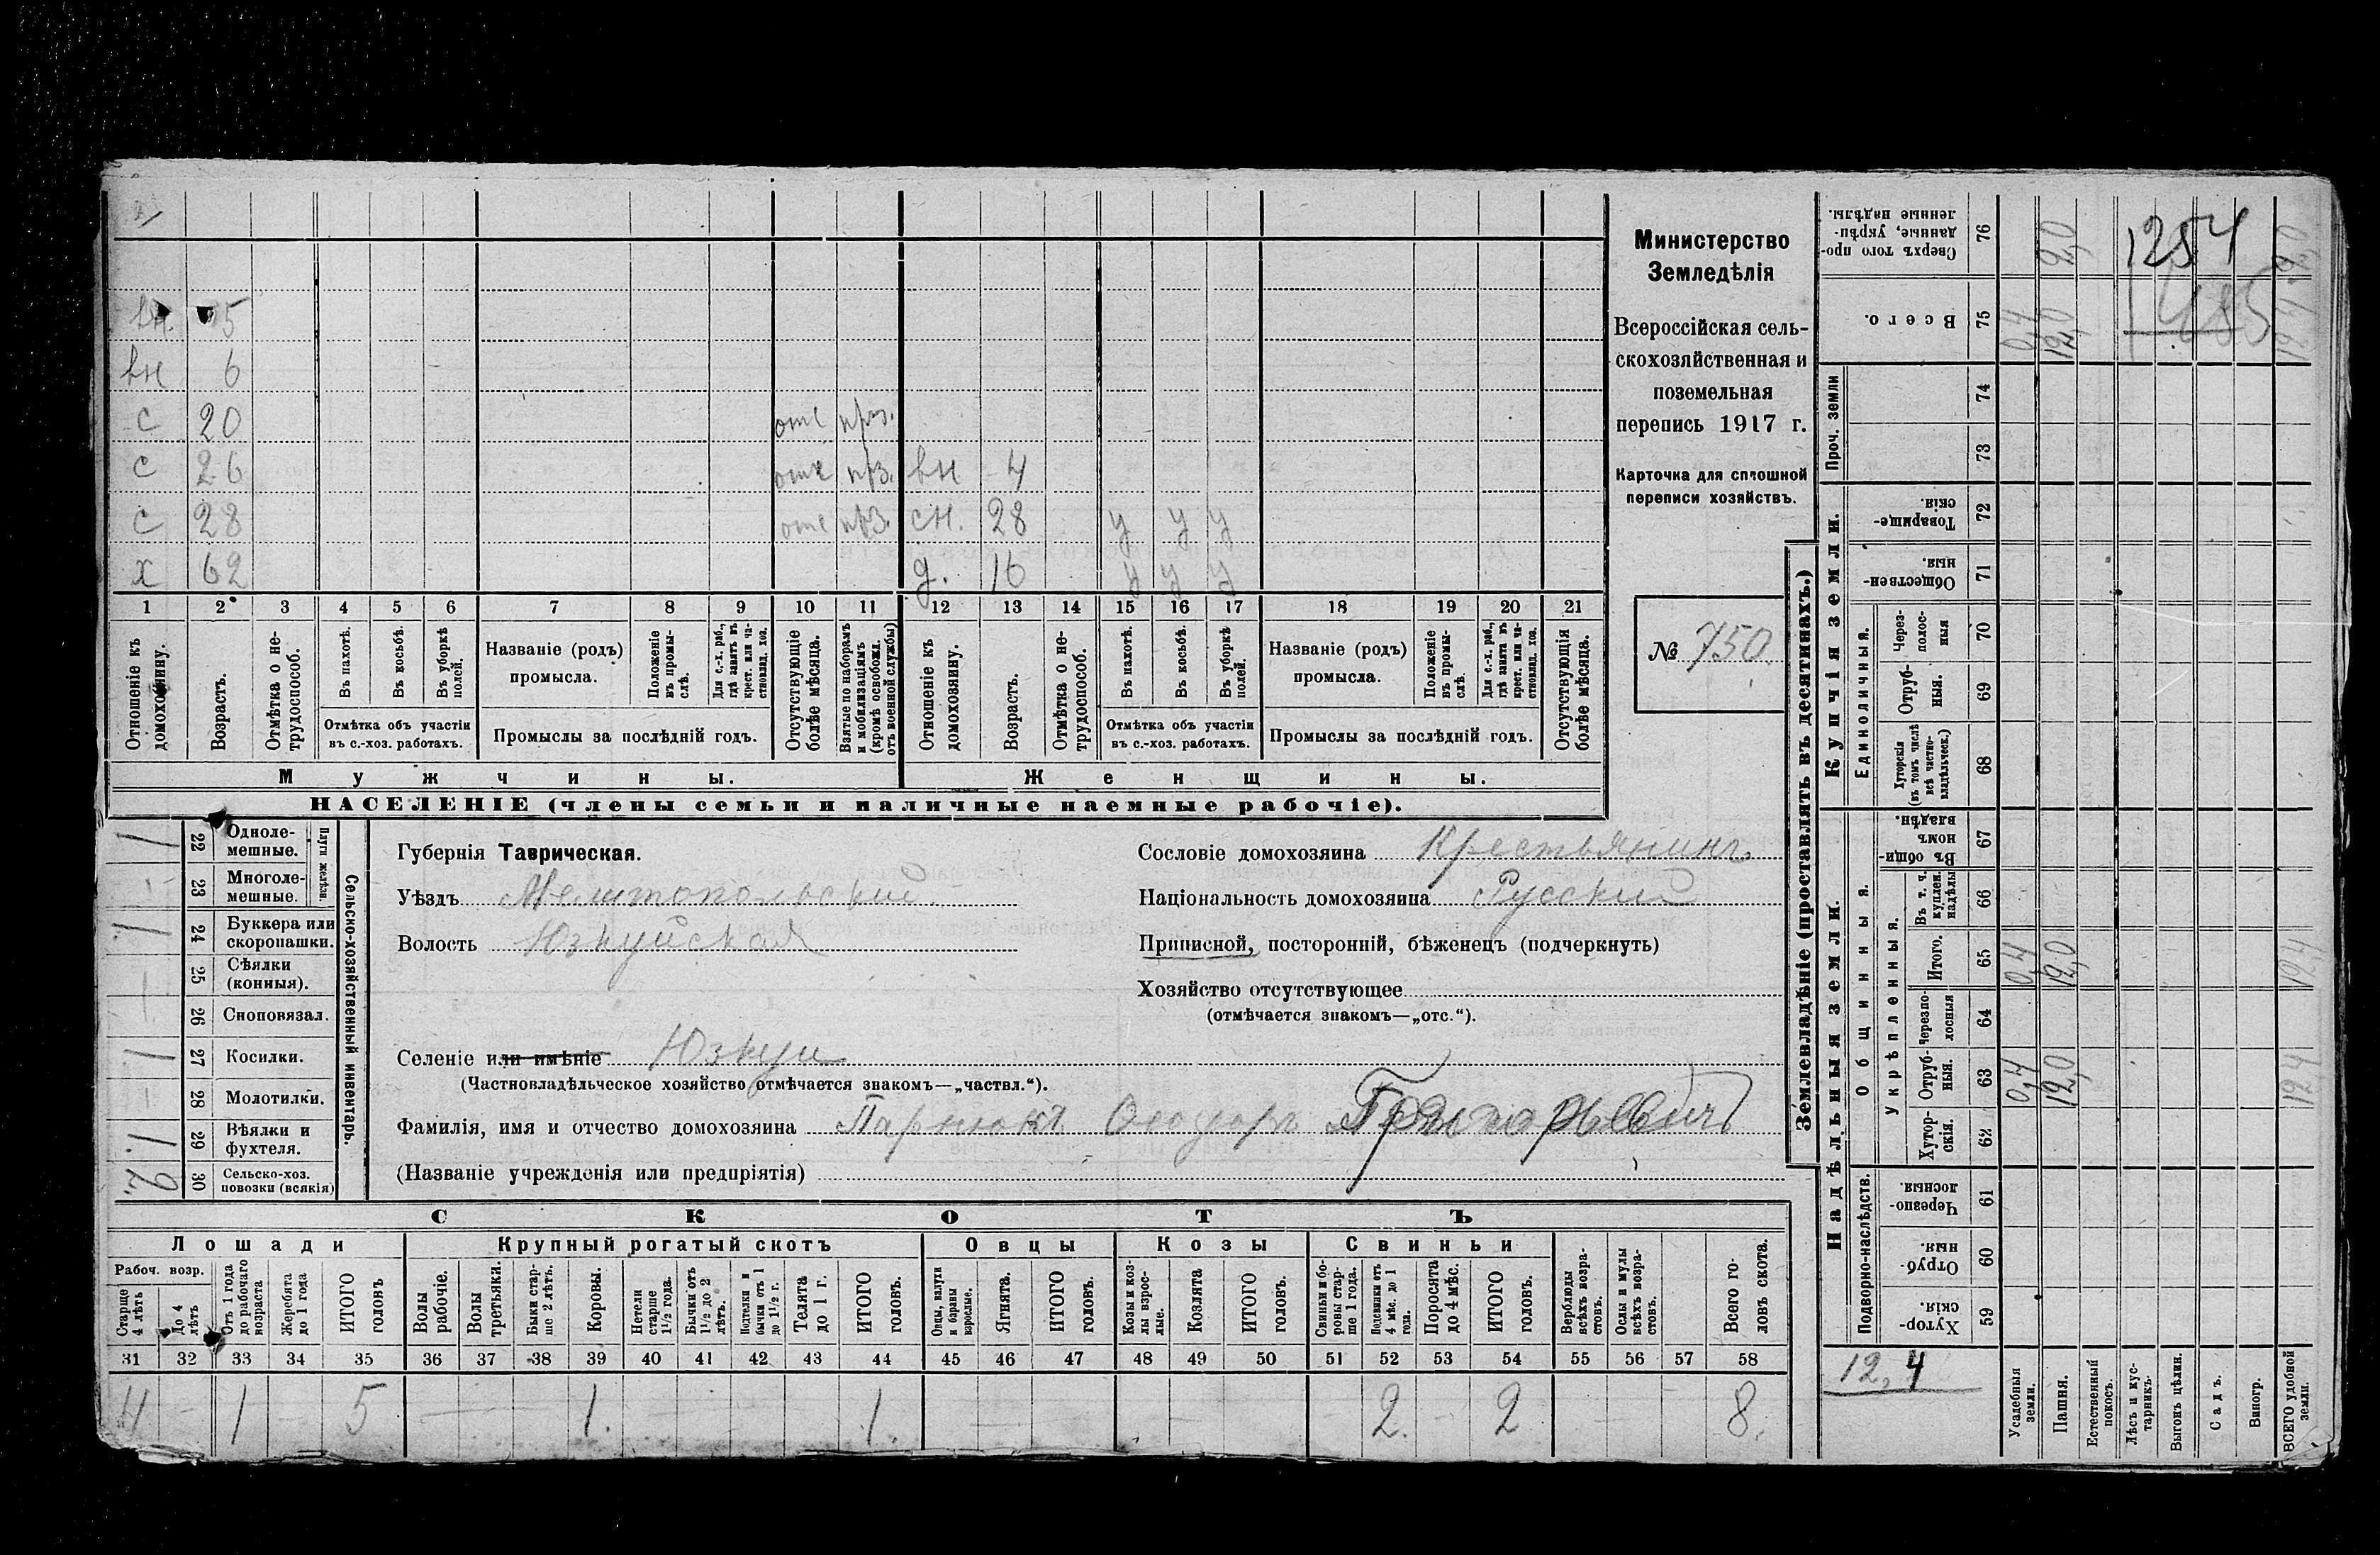 вн. 5
вн 6
с 20 отс прз.
с 26 отс прз. вн 4
с 28 отс прз. сн. 28 у у у
х 62 д. 16 у у у
1 2 3 4 5 6 7 8 9 10 11 12 13 14 15 16 17 18 19 20 21
Отношеніе къ домохозяину.
Возрастъ.
Отмѣтка о не-трудоспособ.
Въ пахотѣ.
Въ косьбѣ.
Въ уборкѣ полей.
Отмѣтка объ участіи въ с.-хоз. работахъ.
Названіе (родъ) промысла.
Положеніе въ промы-слѣ.
Для с.-х. раб., гдѣ занятъ въ крест. или ча-стновлад. хоз.
Промыслы за послѣдній годъ.
Отсутствующіе болѣе мѣсяца.
Взятые по наборамъ и мобилизаціямъ (кромѣ освобожд. отъ военной службы)
Отношеніе къ домохозяину.
Возрастъ.
Отмѣтка о не-трудоспособ.
Въ пахотѣ.
Въ косьбѣ.
Въ уборкѣ полей.
Отмѣтка объ участіи въ с.-хоз. работахъ.
Названіе (родъ) промысла.
Положеніе въ промы-слѣ.
Для с.-х. раб., гдѣ занята въ крест. или ча-стновлад. хоз.
Промыслы за послѣдній годъ.
Отсутствующія болѣе мѣсяца.
Мужчины.
Женщины.
НАСЕЛЕНІЕ (члены семьи и наличные наемные рабочіе).
Министерство
Земледѣлія
Всероссійская сель-
скохозяйственная и
поземельная
перепись 1917 г.
Карточка для сплошной
переписи хозяйствъ.
№ 750.
1 22 Одноле-мешные.
23 Многоле-мешные.
Плуги желѣзн.
1 24 Буккера или скоропашки.
25 Сѣялки (конныя).
26 Сноповязал.
1 27 Косилки.
28 Молотилки.
1 29 Вѣялки и фухтеля.
2 30 Сельско-хоз. повозки (всякія)
Сельско-хозяйственный инвентарь.
Губернія Таврическая.
Уѣздъ Мелитопольский
Волость Юзкуйская
Селеніе или имѣніе Юзкуи
(Частновладѣльческое хозяйство отмѣчается знакомъ—„частвл.“).
Фамилія, имя и отчество домохозяина Парнюкъ Ѳеодоръ Григорьевичъ
(Названіе учрежденія или предпріятія)
Сословіе домохозяина Крестьянинъ
Національность домохозяина Русский
Приписной, посторонній, бѣженецъ (подчеркнуть)
Хозяйство отсутствующее
(отмѣчается знакомъ—„отс.“).
СКОТЪ
Лошади Крупный рогатый скотъ Овцы Козы Свиньи
Рабоч. возр.
Старше 4 лѣтъ
До 4 лѣтъ
Отъ 1 года до рабочаго возраста
Жеребята до 1 года
ИТОГО головъ
Волы рабочіе.
Волы третьяки.
Быки стар-ше 2 лѣтъ.
Коровы.
Нетели старше 1½ года.
Бычки отъ 1½ до 2 лѣтъ.
Подтелки и бычки отъ 1 до 1½ г.
Телята до 1 г.
ИТОГО головъ.
Овцы, валухи и бараны взрослые.
Ягнята.
ИТОГО головъ.
Козы и коз-лы взрос-лые.
Козлята
ИТОГО головъ.
Свиньи и бо-ровы стар-ше 1 года.
Подсвинки отъ 4 мѣс. до 1 года.
Поросята до 4 мѣс.
ИТОГО головъ.
Верблюды всѣхъ возра-стовъ.
Ослы и мулы всѣхъ возра-стовъ.
Всего го-ловъ скота.
31 32 33 34 35 36 37 38 39 40 41 42 43 44 45 46 47 48 49 50 51 52 53 54 55 56 57 58
4 – 1 – 5 1. 1. 2. 2 8.
Землевладѣніе (проставлять въ десятинахъ.)
Купчія земли.
Надѣльныя земли.
Сверхъ того про-данные, укрѣп-ленные надѣлы. 76 2,0 2,0
Всего. 75 0,4 12,0 12,4
1254
1485
Проч. земли 74
73
Товарище-скія. 72
Обществен-ныя. 71
Единоличныя.
Черезполос-ныя 70
Отруб-ныя. 69
Хуторскія (въ томъ числѣ всѣ частно-владѣльческ.) 68
Общинныя.
Въ общин-номъ владѣн. 67
Укрѣпленныя.
Въ т. ч. куплен. надѣлы 66
Итого. 65 0,4 12,0 12,4
Черезпо-лосныя 64
Отруб-ныя. 63 0,4 12,0 12,4
Хутор-скія. 62
Подворно-наслѣдств.
Черезпо-лосныя. 61
Отруб-ныя. 60
Хутор-скія. 59
12,4
Усадебныя земли.
Пашня.
Естественный покосъ.
Лѣсъ и кус-тарникъ.
Выгонъ цѣлин.
Садъ.
Виногр.
ВСЕГО удобной земли.